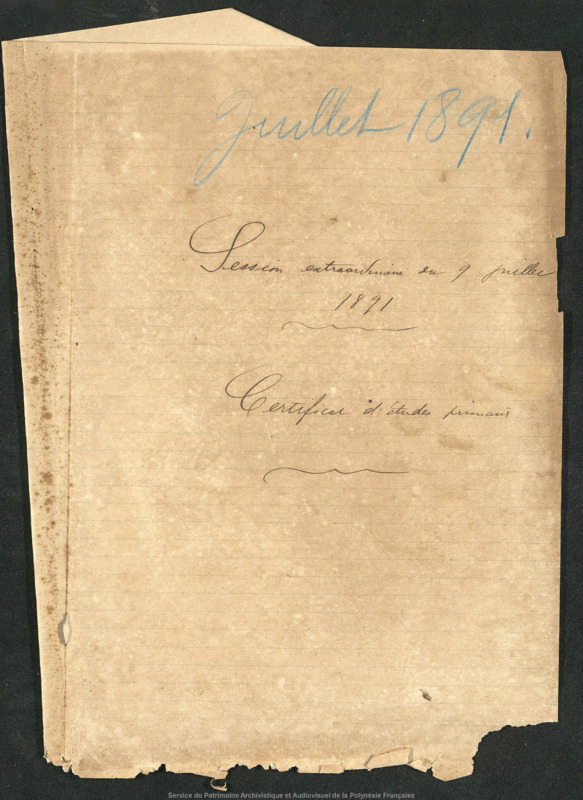 Juillet 1891.
Session extraordinaire du 9 juillet
1891
Certificat d'études primaires
Service du Patrimoine Archivistique et Audiovisuel de la Polynésie Française